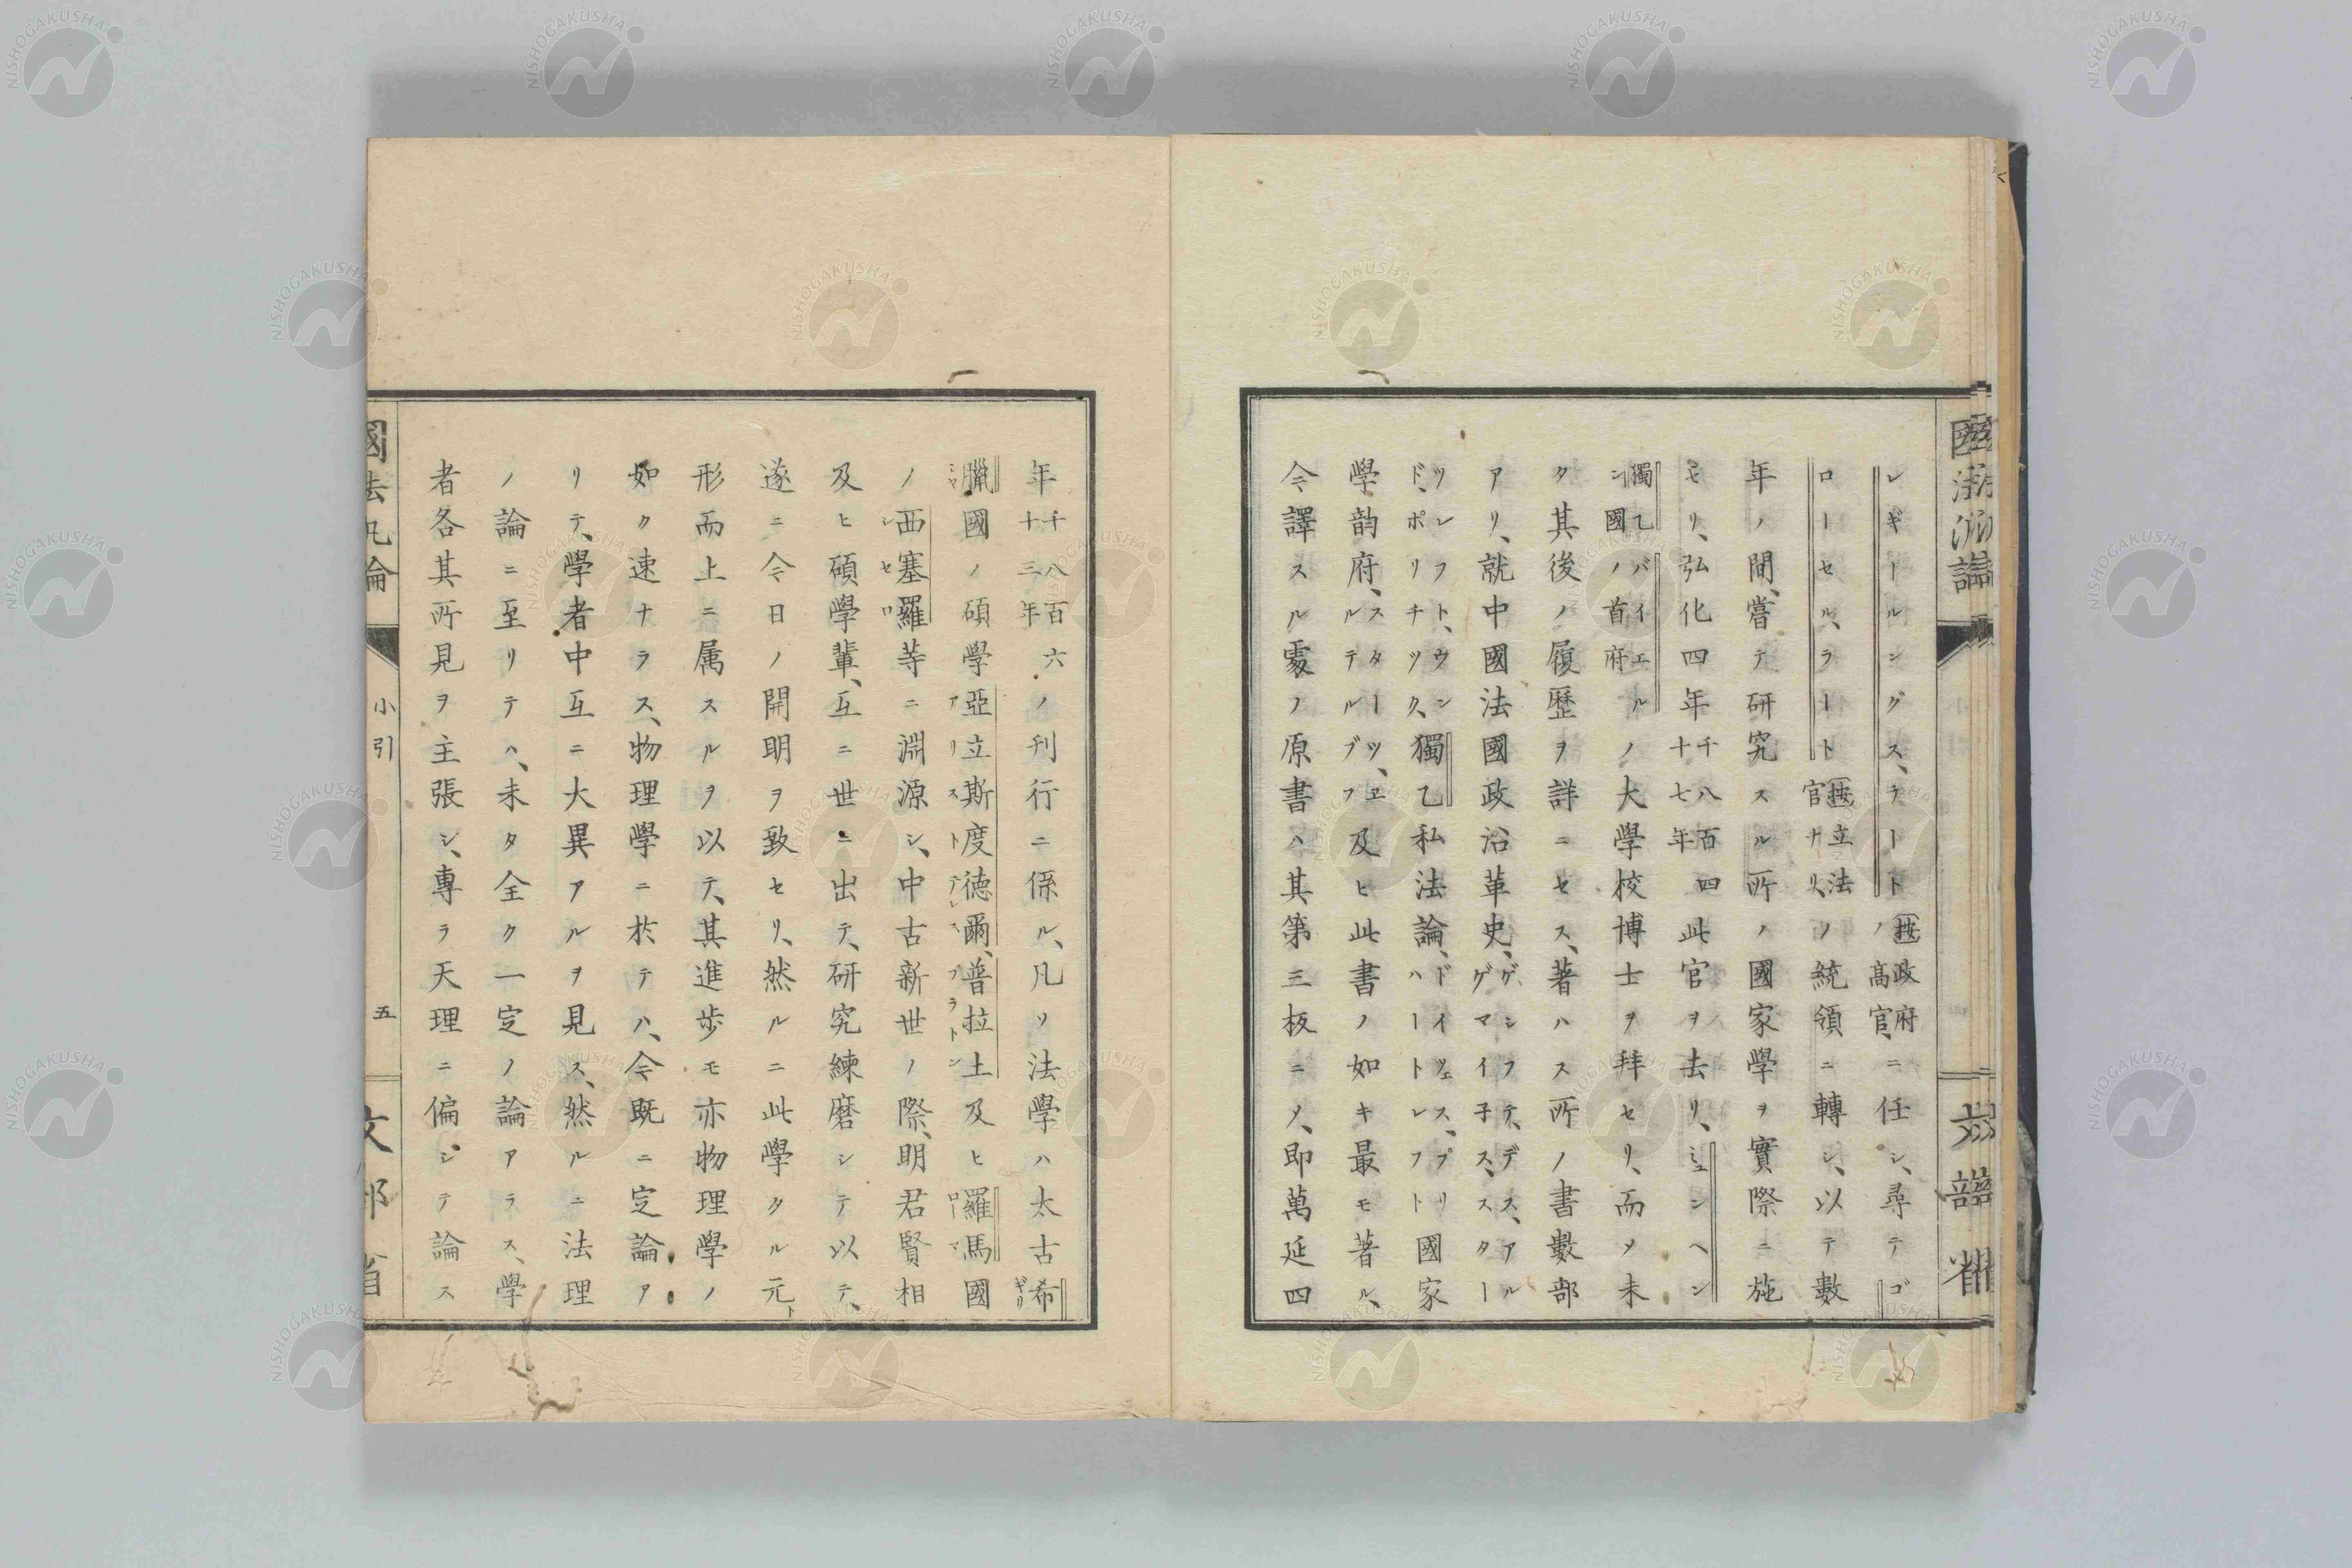 レギールングス、ラート按政府ノ高官、ニ任シ、尋テゴ
ローセル、ラート按立法官ナリ、ノ統領ニ轉シ、以テ數
年ノ間、嘗テ研究スル所ノ國家學ヲ實際ニ施
セリ、弘化四年千八百四十七年此官ヲ去リ、ミュンヘン
獨乙バイエルン國ノ首府ノ大學校博士ヲ拜セリ、而メ未
タ其後ノ履歷ヲ詳ニセス、著ハス所ノ書數部
アリ、就中國法國政治革史、ゲシフテ、デス、アルゲマイ子ス、スター
ツレフト、ウンド、ポリチツク、獨乙私法論、ドイツェス、プリハートレフト國家
學韵府、スターツ、ヱルテルブフ及ヒ此書ノ如キ最モ著ル、
今譯スル處ノ原書ハ其第三板ニメ、即萬延四
年千八百六十三年ノ刊行ニ係ル、凡ソ法學ハ太古希ギリ
臘シヤ國ノ碩學亞立斯度德爾、アリストテレス普拉土プラトン及ヒ羅馬ローマ國
ノ西塞羅シセロ等ニ淵源シ、中古新世ノ際、明君賢相
及ヒ碩學輩、互ニ世ニ出テ、研究練磨シテ以テ、
遂ニ今日ノ開明ヲ致セリ、然ルニ此學タル元ト
形而上ニ属スルヲ以テ、其進步モ亦物理學ノ
如ク速ナラス、物理學ニ於テハ、今既ニ定論ア
リテ、學者中互ニ大異アルヲ見ス、然ルニ法理
ノ論ニ至リテハ、未タ全ク一定ノ論アラス、學
者各其所見ヲ主張シ、專ラ天理ニ偏シテ論ス
國法汎論
小引
五
文部省